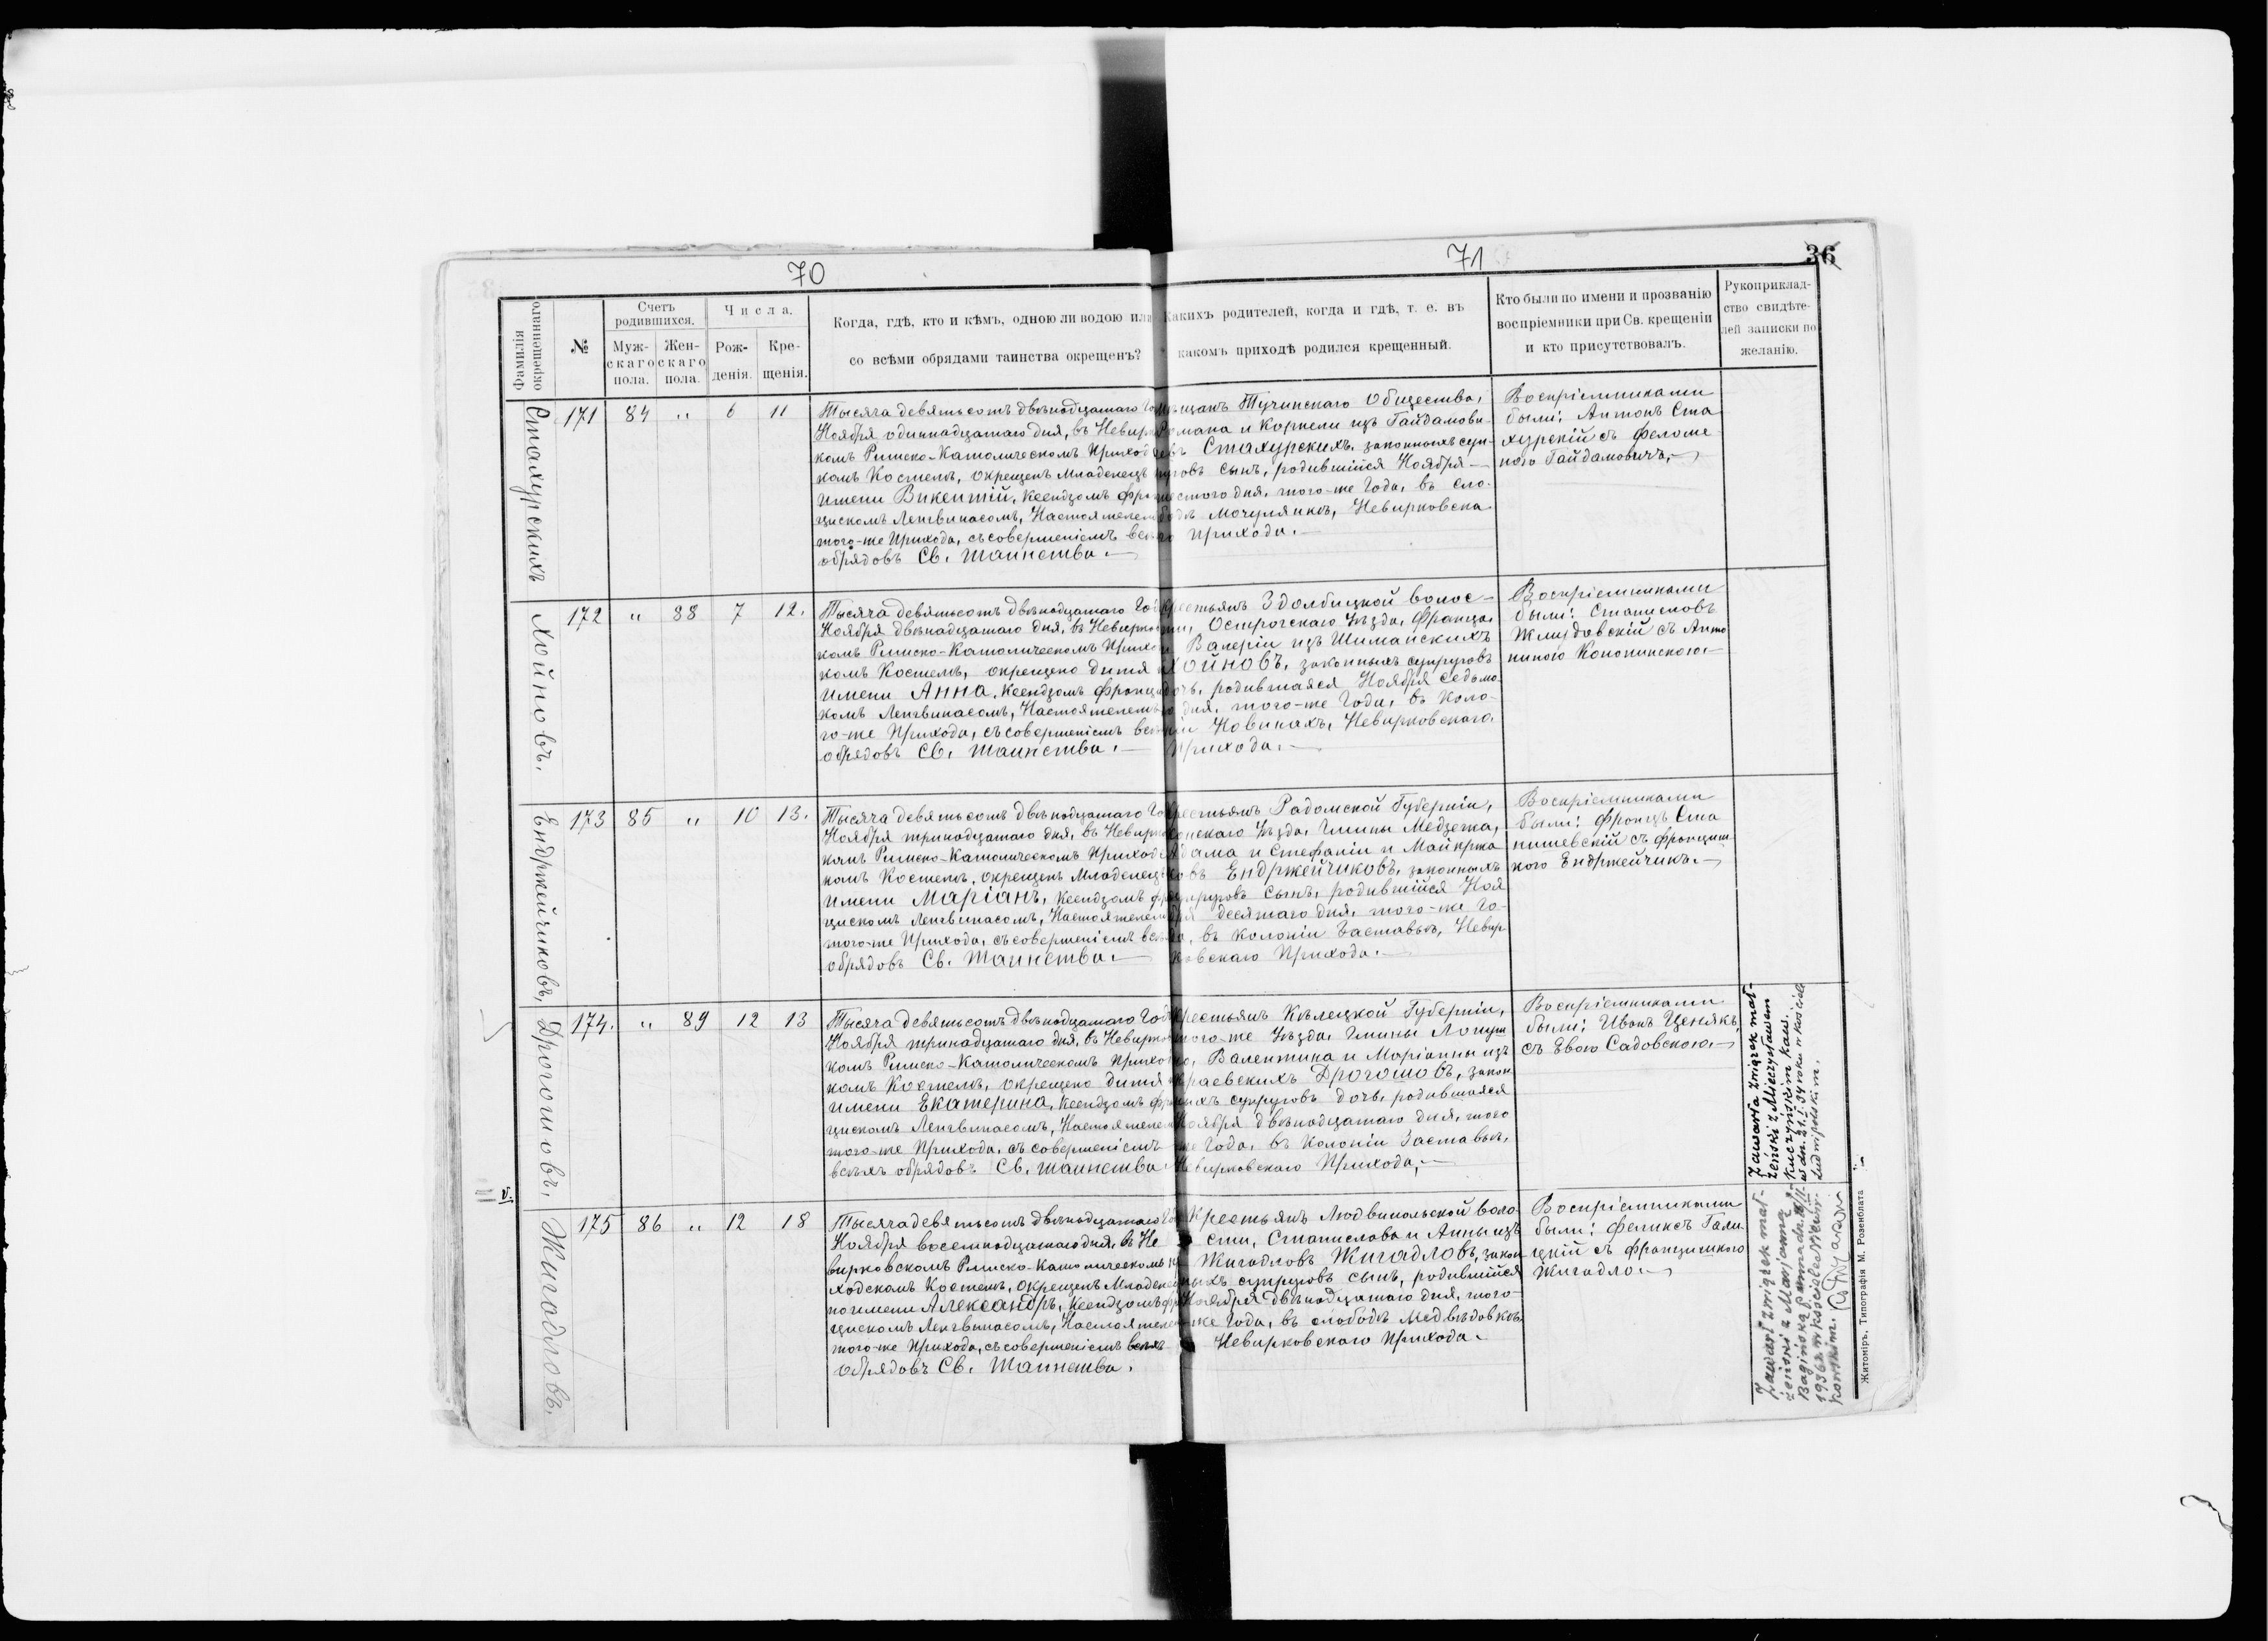 70
71
36
Фамилія окрещеннаго
№
Счетъ родившихся.
Муж-
скаго
пола.
Жен-
скаго
пола.
Числа.
Рож-
денія.
Кре-
щенія.
Когда, гдѣ, кто и кѣмъ, одною ли водою или
со всѣми обрядами таинства окрещенъ?
Какихъ родителей, когда и гдѣ, т. е. въ
какомъ приходѣ родился крещенный.
Кто были по имени и прозванію
воспріемники при Св. крещеніи
и кто присутствовалъ.
Рукоприклад-
ство свидѣте-
лей записки по
желанію.
Стахурскихъ
171 84 „ 6 11
Тысяча девятьсотъ двѣнадцатаго
Ноября одиннадцатаго дня, въ
комъ Римско-Католическомъ
комъ Костелѣ, окрещенъ Младенецъ
имени Викентій, Ксендзомъ
цискомъ Ленгвинасомъ,
того-же Прихода, съ совершеніемъ
обрядовъ Св. Таинства.—
Тучинскаго Общества,
Романа и Корнели изъ Гайдамови-
Стахурскихъ, законныхъ суп-
сынъ, родившійся Ноября—
дня, того-же Года, въ Сло-
Мочулянкѣ, Невирковска
Прихода.—
Воспріемниками
были: Антонъ Ста
хурскій съ Феломе
ною Гайдамовичъ.—
Хойновъ.
172 „ 88 7 12.
Тысяча девятьсотъ двѣнадцатаго
Ноября двѣнадцатаго дня, въ
комъ Римско-Католическомъ
комъ Костелѣ, окрещено дитя
имени Анна, Ксендзомъ
комъ Ленгвинасомъ, Настоятелемъ
го-же Прихода, съ совершеніемъ
обрядовъ Св. Таинства.—
Крестьянъ Здолбицкой волос-
Острогскаго Уѣзда, Франца
Валеріи изъ Шиманскихъ
Хойновъ, законныхъ супруговъ
дочь, родившаяся Ноября седьмо-
дня, того-же Года, въ Коло-
Новинахъ, Невирковскаго
Прихода.—
Воспріемниками
были: Станиславъ
Жмудовскій съ Анто
ниною Конопинскою.—
Ендржейчиковъ,
173 85 „ 10 13.
Тысяча девятьсотъ двѣнадцатаго
Ноября тринадцатаго дня, въ
комъ Римско-Католическомъ
комъ Костелѣ, окрещенъ Младенецъ
имени Маріанъ, Ксендзомъ
цискомъ Ленгвинасомъ,
того-же Прихода, съ совершеніемъ
обрядовъ Св. Таинства.—
Крестьянъ Радомской Губерніи,
Уѣзда, Гмины Медзежа,
Адама и Стефаніи и Майкржа
Ендржейчиковъ, законныхъ
супруговъ сынъ, родившійся Ноя
десятаго дня, того-же Го-
въ Колоніи Заставье, Невир-
ковскаго Прихода.—
Воспріемниками
были: Францъ Ста
нишевскій съ Франциш
кою Ендржейчикъ.—
Дрогошовъ.
174. „ 89 12 13
Тысяча девятьсотъ двѣнадцатаго
Ноября тринадцатаго дня, въ
комъ Римско-Католическомъ
комъ Костелѣ, окрещено дитя
имени Екатерина, Ксендзомъ
цискомъ Ленгвинасомъ,
того-же Прихода, съ совершеніемъ
всѣхъ обрядовъ Св. Таинства
Крестьянъ Кѣлецкой Губерніи,
того-же Уѣзда, Гмины Лопуш
Валентина и Маріанны изъ
Дрогошовъ, закон
супруговъ дочь, родившаяся
Ноября двѣнадцатаго дня, того
же Года, въ Колоніи Заставье,
Невирковскаго Прихода,—
Воспріемниками
были: Иванъ Ценякъ,
съ Евою Садовскою.—
Zawarła związek mał-
żeński z Mieczysławem
Kuczyńskim kaw.
w dn. 21.I.34 roku w kościele
Ludwipolskim.
Жигадловъ.
175 86 „ 12 18
Тысяча девятьсотъ двѣнадцатаго
Ноября восемнадцатаго дня, въ Не
вирковскомъ Римско-Католическомъ
ходскомъ Костелѣ, окрещенъ Младенецъ
по имени Александръ, Ксендзомъ
цискомъ Ленгвинасомъ,
того-же Прихода, съ совершеніемъ всѣхъ
обрядовъ Св. Таинства.
Крестьянъ Людвипольской воло-
сти, Станислава и Анны изъ
Жигадловъ Жигадловъ, закон
ныхъ супруговъ сынъ, родившійся
Ноября двѣнадцатаго дня, того-
же Года, въ слободѣ Медвѣдовкѣ,
Невирковскаго Прихода.
Воспріемниками
были: Феликсъ Гали-
цкій съ Францишкою
Жигадло.—
Zawarł związek mał-
żeński z Marjanną
Bagińską
1936 r. w kościele
Житоміръ, Типографія М. Розенблата